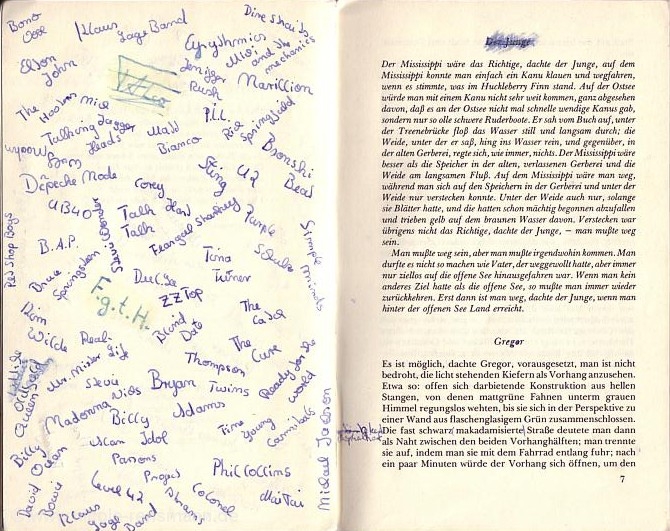 Bono
Klaus
Lage Band
Dire Straits
Elton
John
Eurythmics
Jenifer
Rush
and the
mechanics
Marillion
The
Hooters
Mick
Jagger
Talking
Heads
P.I.L.
Rick
Springfield
Matt
Bianco
Bronski
Beat
Depeche Mode
Corey
Hart
Sting
U2
UB40
Talk
Talk
Purple
B.A.P.
Bruce
Springsteen
Tina
Turner
Simple
minds
Pet Shop Boys
F.g.t.H.
ZZ Top
Blind
Date
The
Cult
Kim
Wilde
Real
Life
Mr. Mister
The
Cure
Thompson
Twins
Stevie
Nicks
Bryan
Adams
Ready for the
world
Queen
Madonna
Billy
Idol
Alan
Parsons
Project
Billy
Ocean
Time
Young
Cannibals
Michael Jackson
Phil Collins
David
Bowie
Level 42
Colonel
Abrams
Mai Tai
Klaus
Lage
Band
Der Junge
Der Mississippi wäre das Richtige, dachte der Junge, auf dem
Mississippi konnte man einfach ein Kanu klauen und wegfahren,
wenn es stimmte, was im Huckleberry Finn stand. Auf der Ostsee
würde man mit einem Kanu nicht sehr weit kommen, ganz abgesehen
davon, daß es an der Ostsee nicht mal schnelle wendige Kanus gab,
sondern nur so olle schwere Ruderboote. Er sah vom Buch auf, unter
der Treenebrücke floß das Wasser still und langsam durch; die
Weide, unter der er saß, hing ins Wasser rein, und gegenüber, in
der alten Gerberei, regte sich, wie immer, nichts. Der Mississippi wäre
besser als die Speicher in der alten, verlassenen Gerberei und die
Weide am langsamen Fluß. Auf dem Mississippi wäre man weg,
während man sich auf den Speichern in der Gerberei und unter der
Weide nur verstecken konnte. Unter der Weide auch nur, solange
sie Blätter hatte, und die hatten schon mächtig begonnen abzufallen
und trieben gelb auf dem braunen Wasser davon. Verstecken war
übrigens nicht das Richtige, dachte der Junge, – man mußte weg
sein.
Man mußte weg sein, aber man mußte irgendwohin kommen. Man
durfte es nicht so machen wie Vater, der weggewollt hatte, aber immer
nur ziellos auf die offene See hinausgefahren war. Wenn man kein
anderes Ziel hatte als die offene See, so mußte man immer wieder
zurückkehren. Erst dann ist man weg, dachte der Junge, wenn man
hinter der offenen See Land erreicht.
Gregor
Es ist möglich, dachte Gregor, vorausgesetzt, man ist nicht
bedroht, die licht stehenden Kiefern als Vorhang anzusehen.
Etwa so: offen sich darbietende Konstruktion aus hellen
Stangen, von denen mattgrüne Fahnen unterm grauen
Himmel regungslos wehten, bis sie sich in der Perspektive zu
einer Wand aus flaschenglasigem Grün zusammenschlossen.
Die fast schwarz makadamisierte Straße deutete man dann
als Naht zwischen den beiden Vorhanghälften; man trennte
sie auf, indem man sie mit dem Fahrrad entlang fuhr; nach
ein paar Minuten würde der Vorhang sich öffnen, um den
7